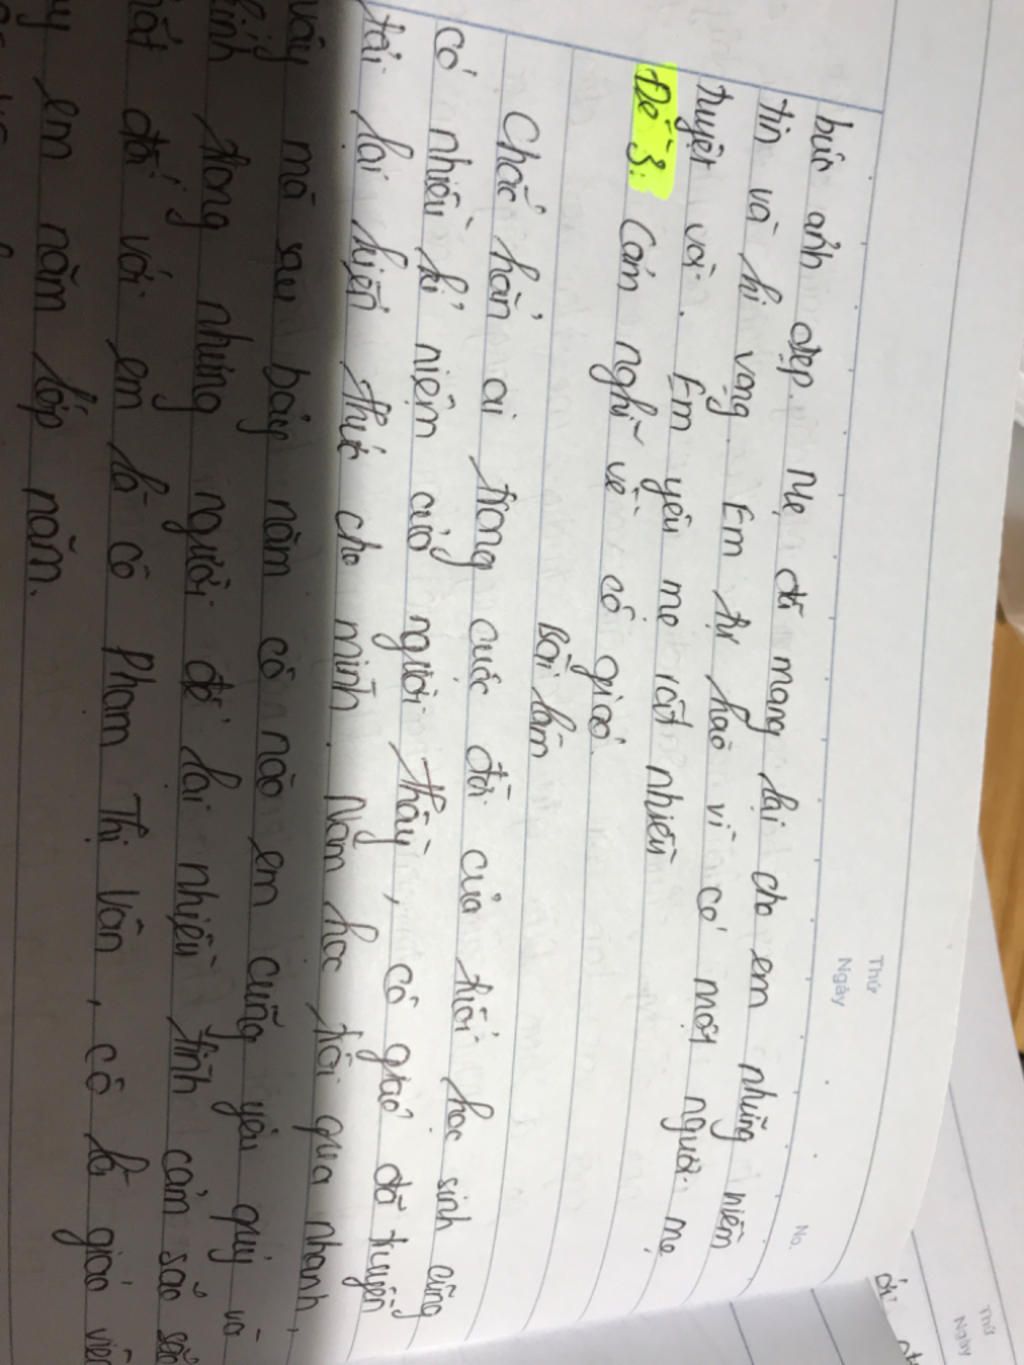 Thứ
Ngày
No.
bức ảnh đẹp. Mẹ đã mang lại cho em những niềm
tin và hi vọng. Em tự hào vì có một người mẹ
tuyệt vời. Em yêu mẹ rất nhiều
Đề 3: Cảm nghĩ về cô giáo
Bài làm
Chắc hẳn ai trong cuộc đời của mỗi học sinh cũng
có nhiều kỉ niệm của người thầy, cô giáo đã truyền
tải lại kiến thức cho mình. Năm học trôi qua nhanh,
vậy mà sau bảy năm cô nào em cũng yêu quý và
kính trọng nhưng người để lại nhiều tình cảm sâu sắc
nhất đối với em là cô Phạm Thị Vân, cô là giáo viên
dạy em năm lớp năm.
Thứ
Ngày